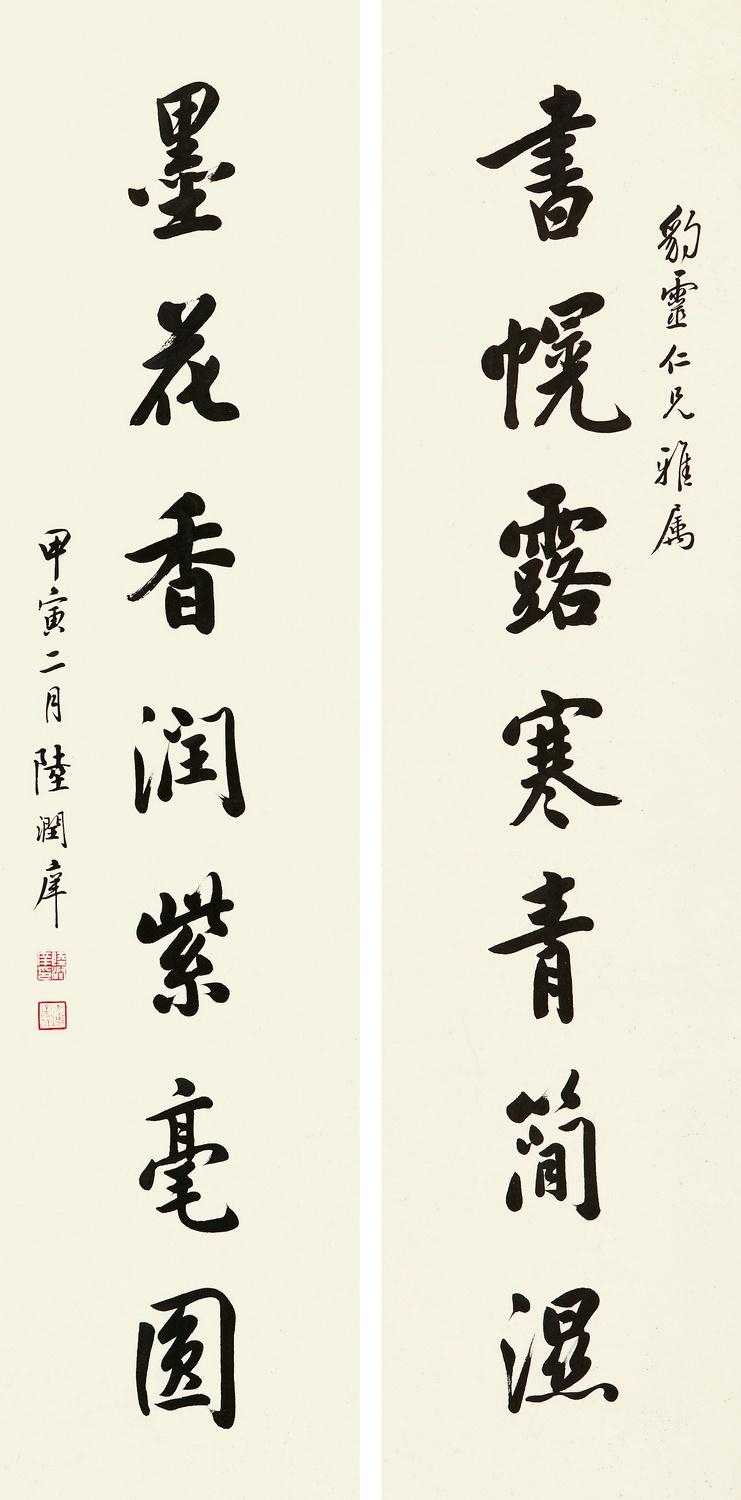 豹靈仁兄雅属
書幌露寒青簡濕
墨花香润紫毫圆
甲寅二月陸潤庠